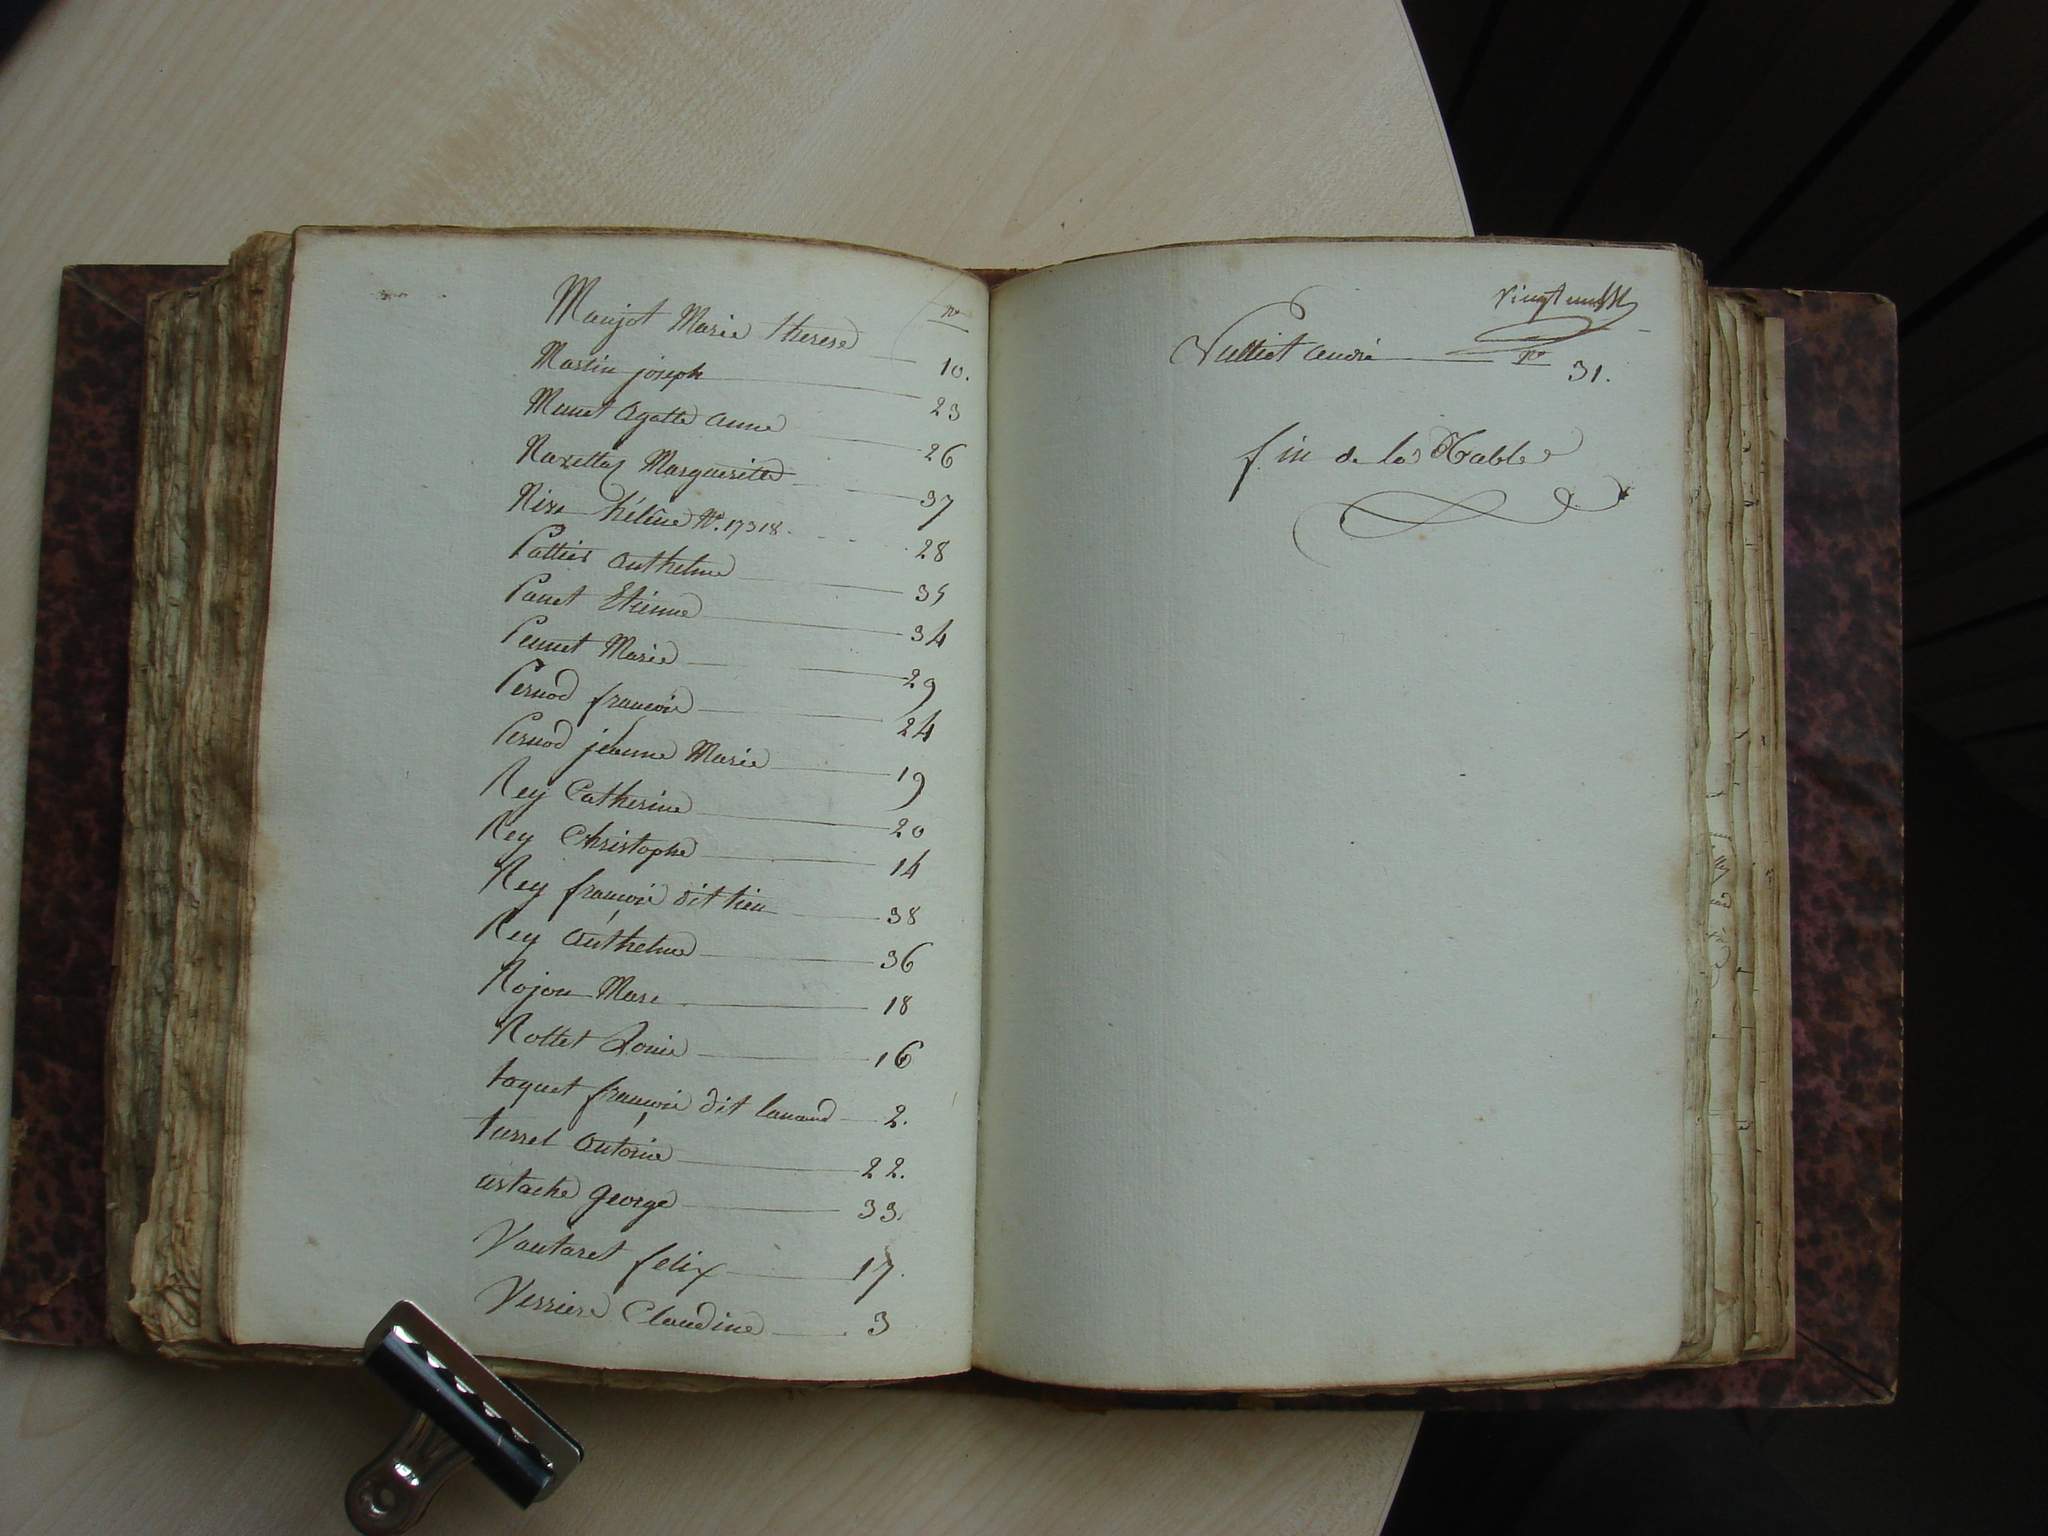 nº
Manjot Marie therese 10.
Martin joseph 23
Monet agatte anne 26
Marguerite 37
hélêne Nº. 17318. 28
Pattier anthelme 35
Etienne 34
Marie 29
Pernod francois 24
Pernod jeanne Marie 19
Rey Catherine 20
Rey Christophe 14
Rey francois dit tien 38
Rey anthelme 36
Rojon Marc 18
Rottet Louis 16
toquet francois dit 2.
turrel antoine 22.
ustache george 33.
Vautaret felix 17.
Verriere Claudine 3
Vulliet andré nº 31.
fin de la Table